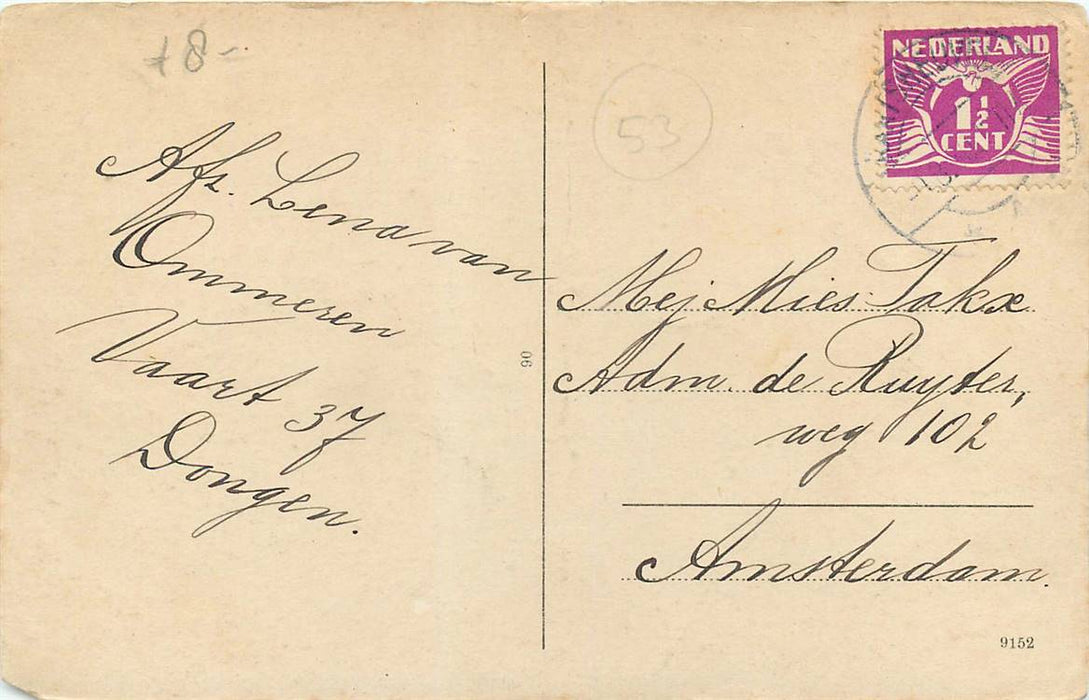 +8-
53
NEDERLAND
1 1/2
CENT
Afz. Lena van
Ommeren
Vaart 37
Dongen.
90
Mej Mies Takx
Adm. de Ruyter,
weg 102
Amsterdam.
9152